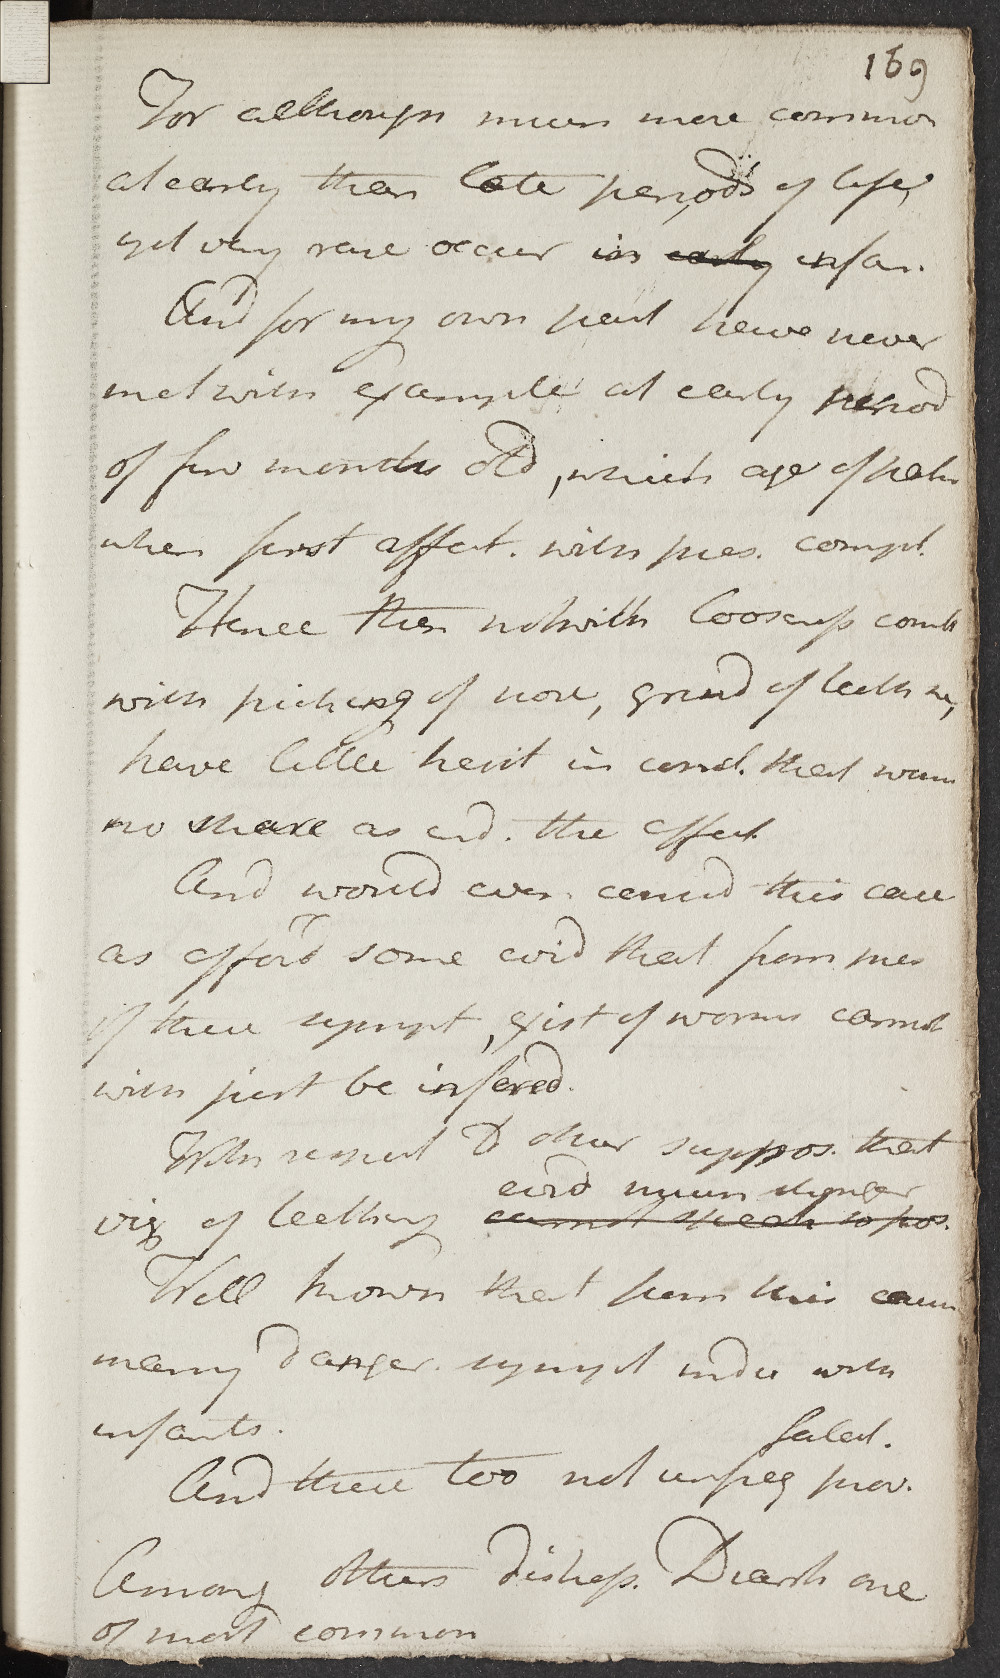 169
For although much more common
at early than late periods of life,
yet very rare occur in early infan.
And for my own part have never
met with example at early period
of few months old, which age of patn
when first affect. with pres. compl.
Hence then notwith Looseness comb
with picking of nose, grind of teeth &c,
have little hesit in concl. that worms
no share as end. the effect
And would even consid this case
as afford some evid that from pres
of these sympt, exist of worms cannot
with just be infered.
With respect to other suppos. that
evid much stronger
viz of teething cannot speak so pos.
Well known that from this cause
many danger. sympt induc with
infants.
fatal.
And these too not unfreq prov.
Among others dishess. Diarrh one
of most common